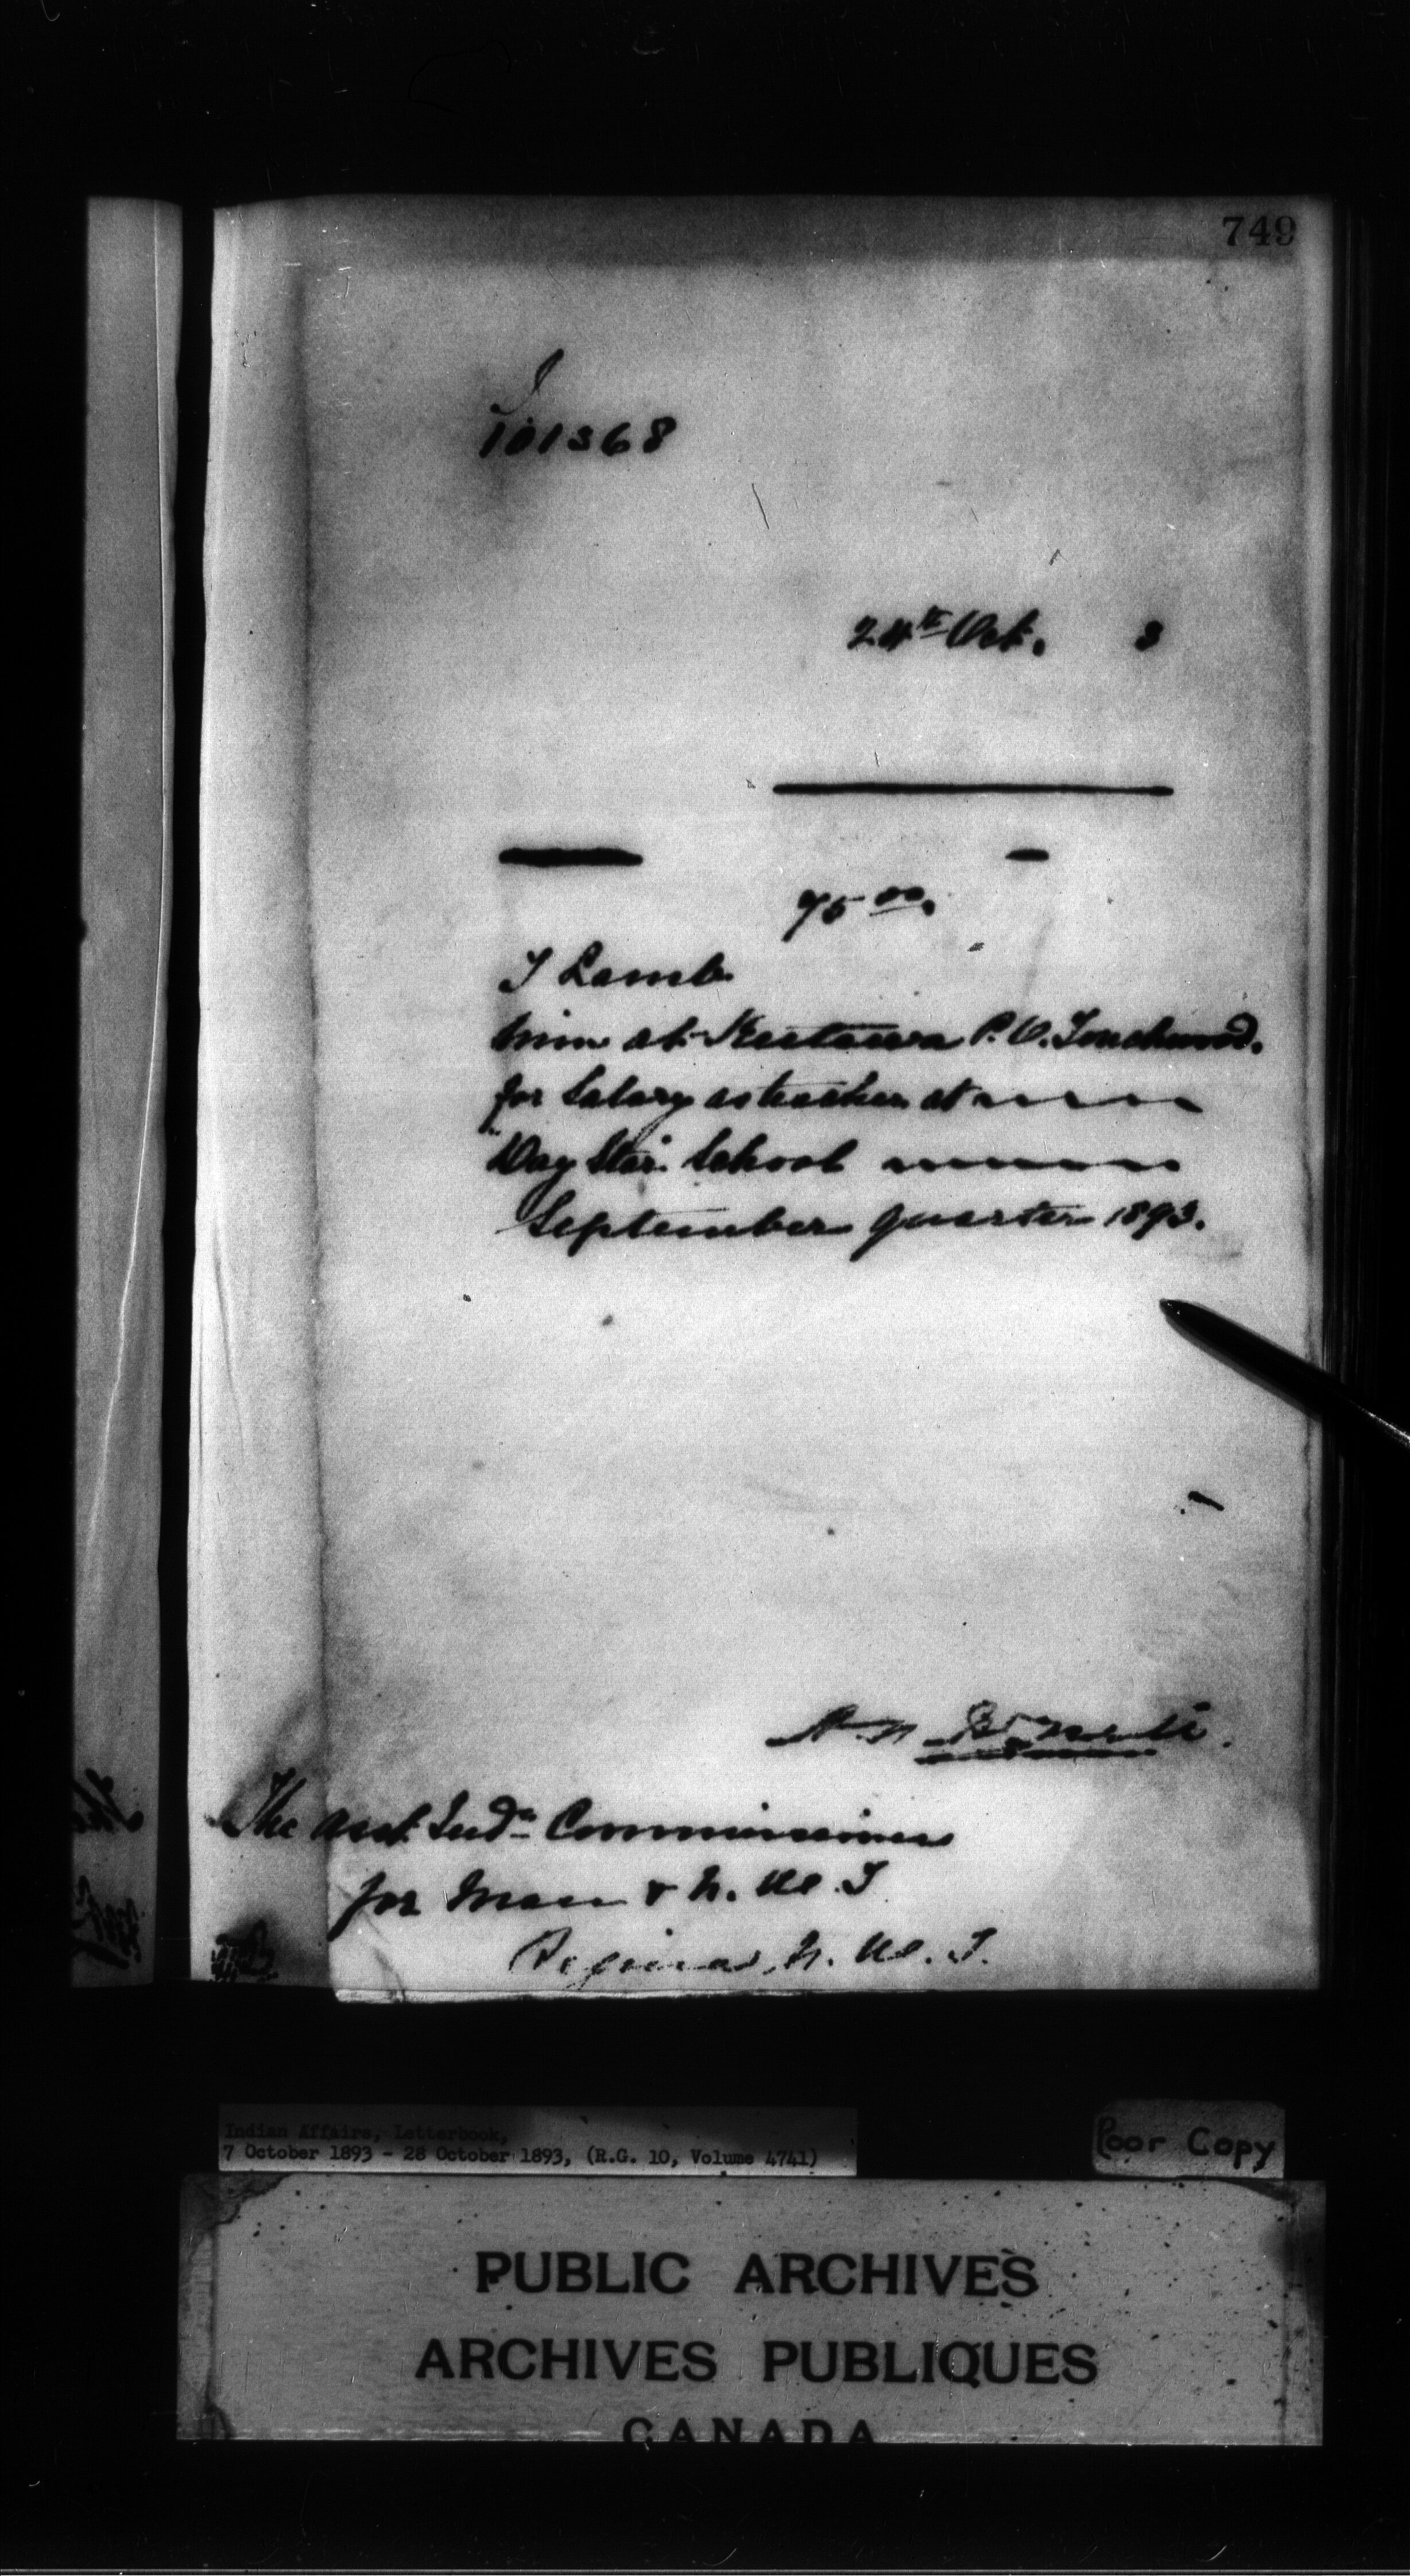 749
101368
24th Oct. 3
75 00.
I Lamb
him at Kutawa P.O. Touchwood.
for Salary as teacher at
Day Star School
September quarter 1893.
The asst. Indn Commissioner
for Man & N.W.T
Regina, N.W.T.
Indian Affairs, Letterbook,
7 October 1893 - 28 October 1893, (R.G. 10, Volume 4741)
Poor Copy
PUBLIC ARCHIVES
ARCHIVES PUBLIQUES
CANADA